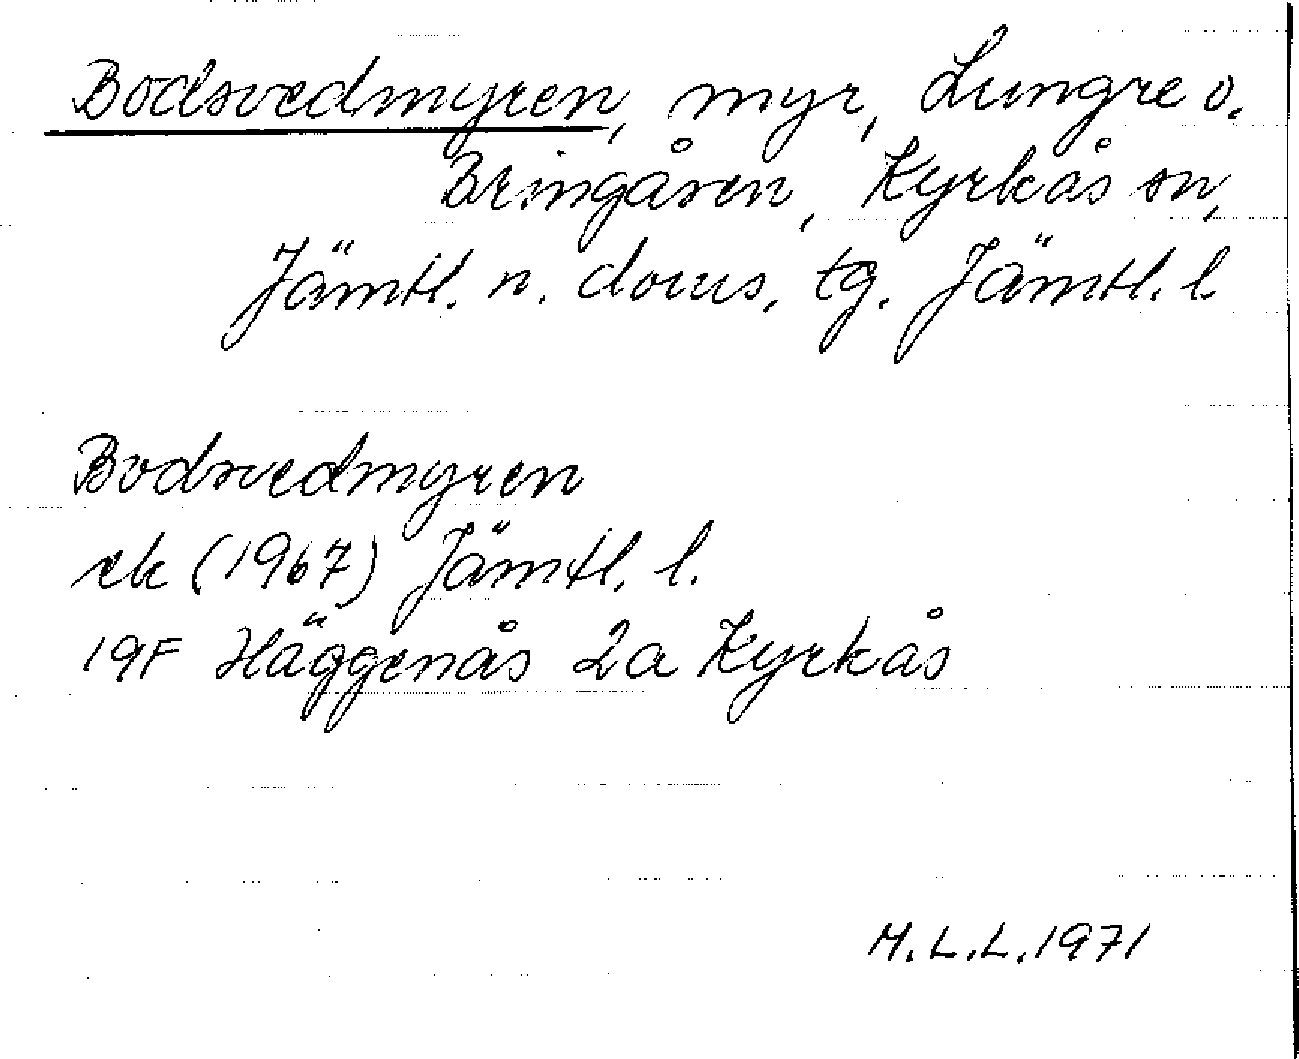 Bodsvedmyren, myr, Lungre o.
Bringåsen, Kyrkås sn,
Jämtl. n. doms. tg. Jämtl. l.
Bodsvedmyren
ek (1967) Jämtl. l.
19F Häggenås 2a Kyrkås
M.L.L.1971